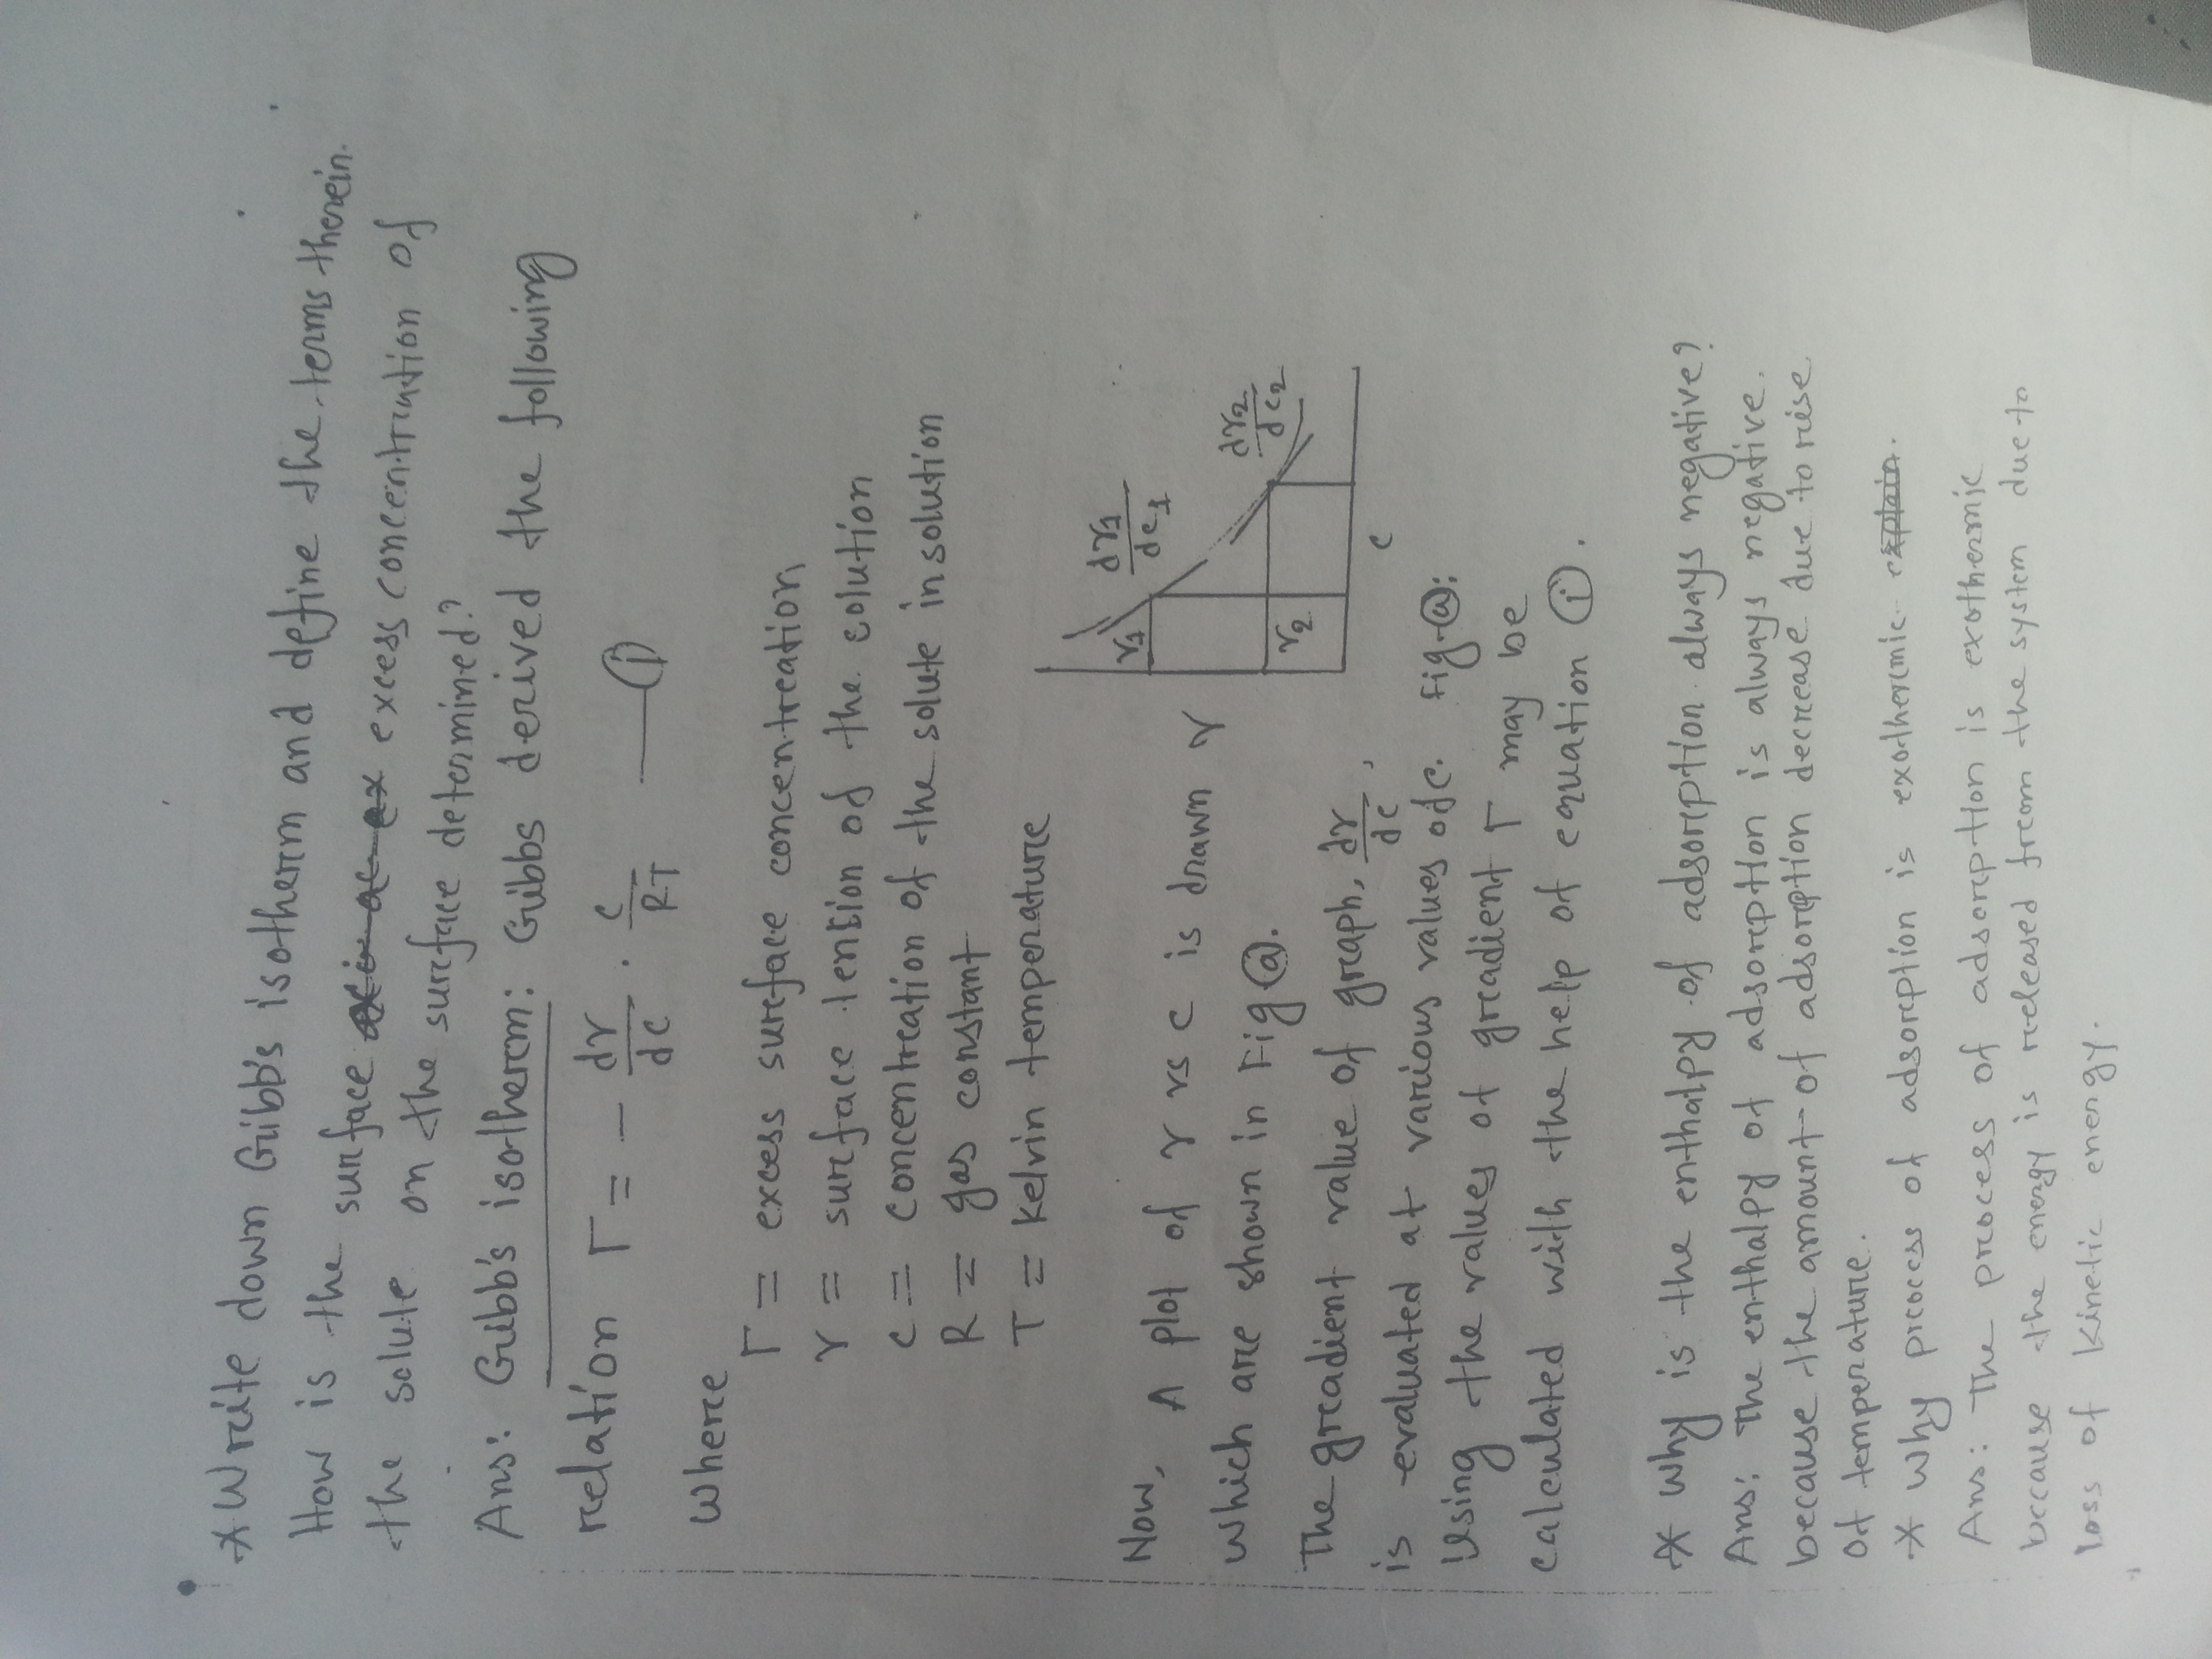 * Write down Gibb's isotherm and define the terms therein.
How is the surface excess concentration of
the solute on the surface determined?
Ans: Gibb's isotherm: Gibbs derived the following
relation Γ = - dγ/dc . c/RT —— (i)
where
Γ = excess surface concentration
γ = surface tension of the solution
c = concentration of the solute in solution
R = gas constant
T = Kelvin temperature
Now, A plot of γ vs c is drawn
which are shown in Fig (a).
The gradient value of graph, dγ/dc,
is evaluated at various values of c.
Using the values of gradient Γ may be
calculated with the help of equation (i).
γ
γ1
γ2
dγ1/dc1
dγ2/dc2
c
Fig-(a):
* Why is the enthalpy of adsorption always negative?
Ans: The enthalpy of adsorption is always negative.
because the amount of adsorption decrease due to rise
of temperature.
* Why process of adsorption is exothermic. explain.
Ans: The process of adsorption is exothermic
because the energy is released from the system due to
loss of kinetic energy.